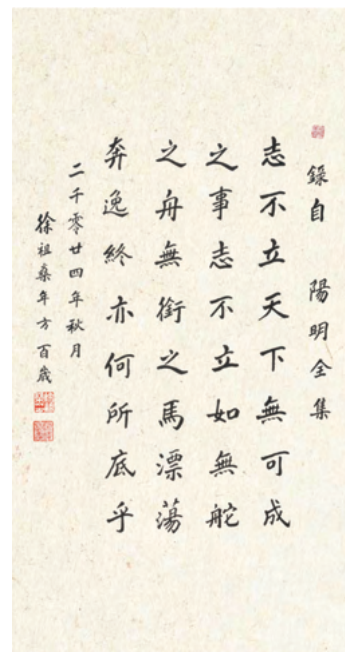 錄自 陽明全集
志不立天下無可成
之事志不立如無舵
之舟無銜之馬漂蕩
奔逸終亦何所底乎
二千零廿四年秋月
徐祖燊年方百歲